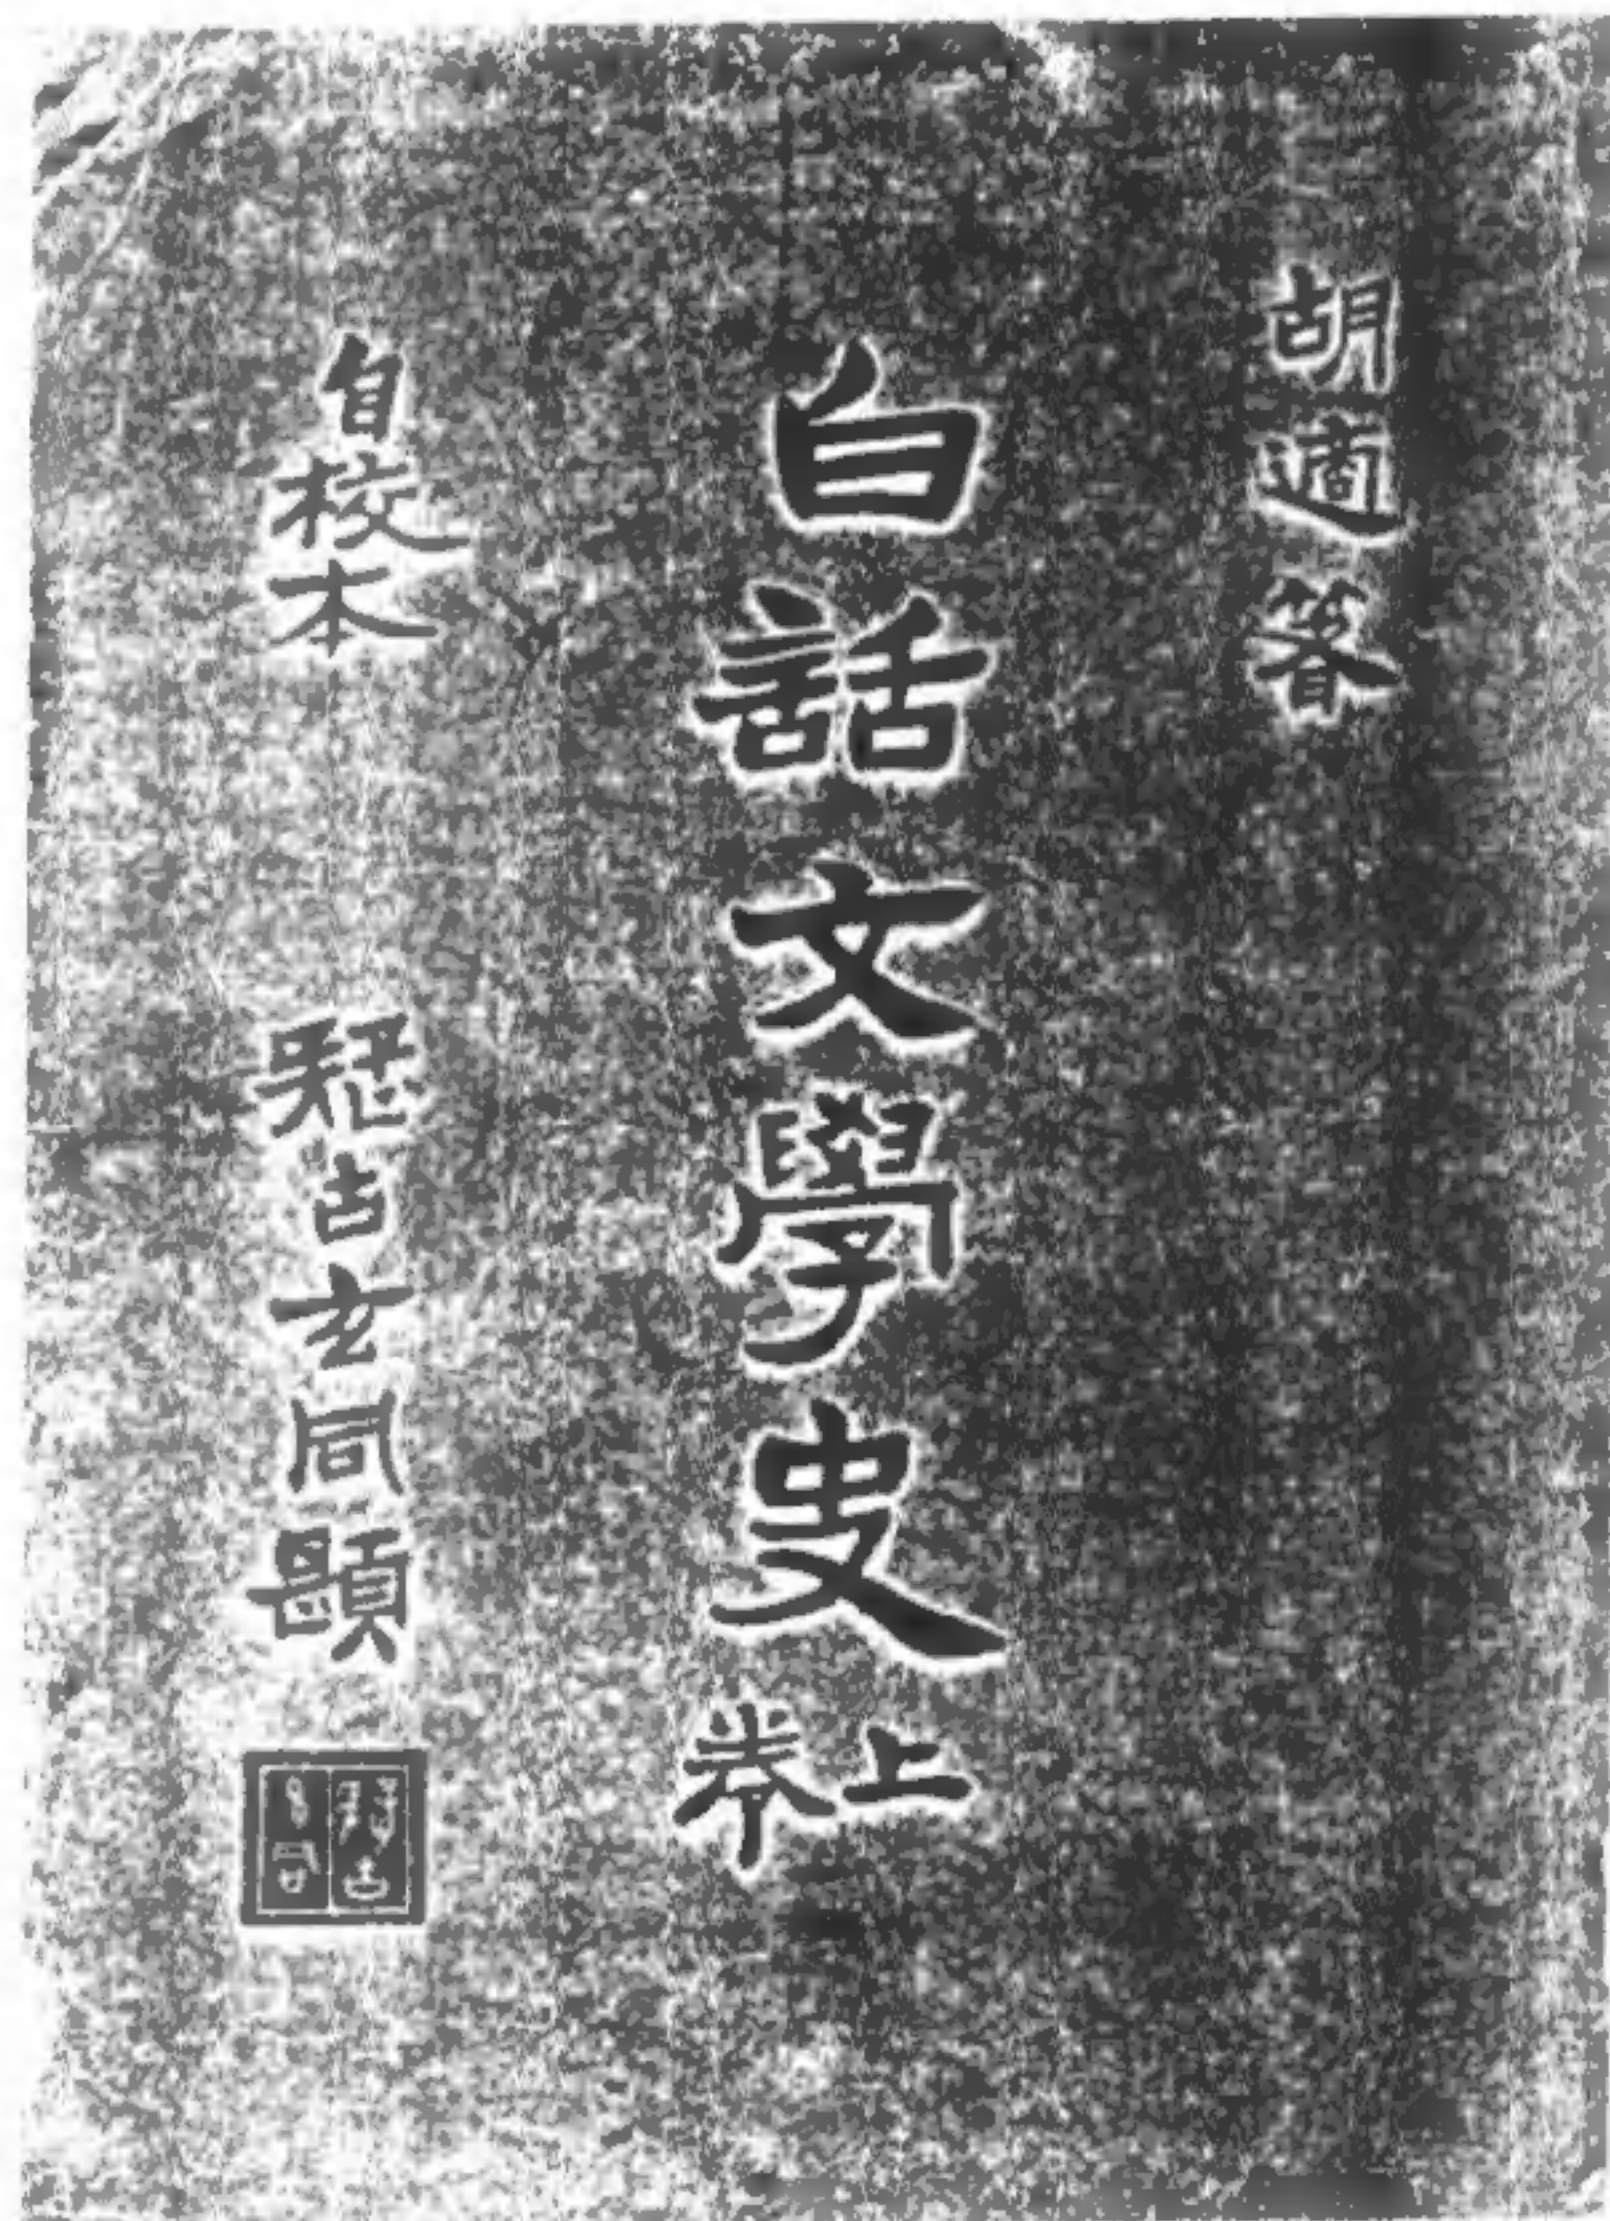 胡適著
白話文學史 上卷
自校本
疑古玄同題
疑古玄同